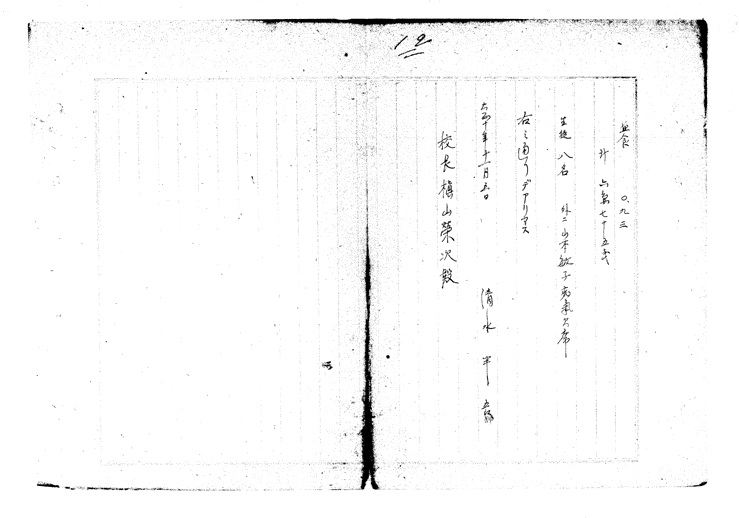 12
昼食 〇.九三
計 六銭七十五戈
生徒 八名 外ニ山本敏子病氣欠席
右之通リデアリマス
大正十年十一月五日
清水半五郎
校長横山榮次殿